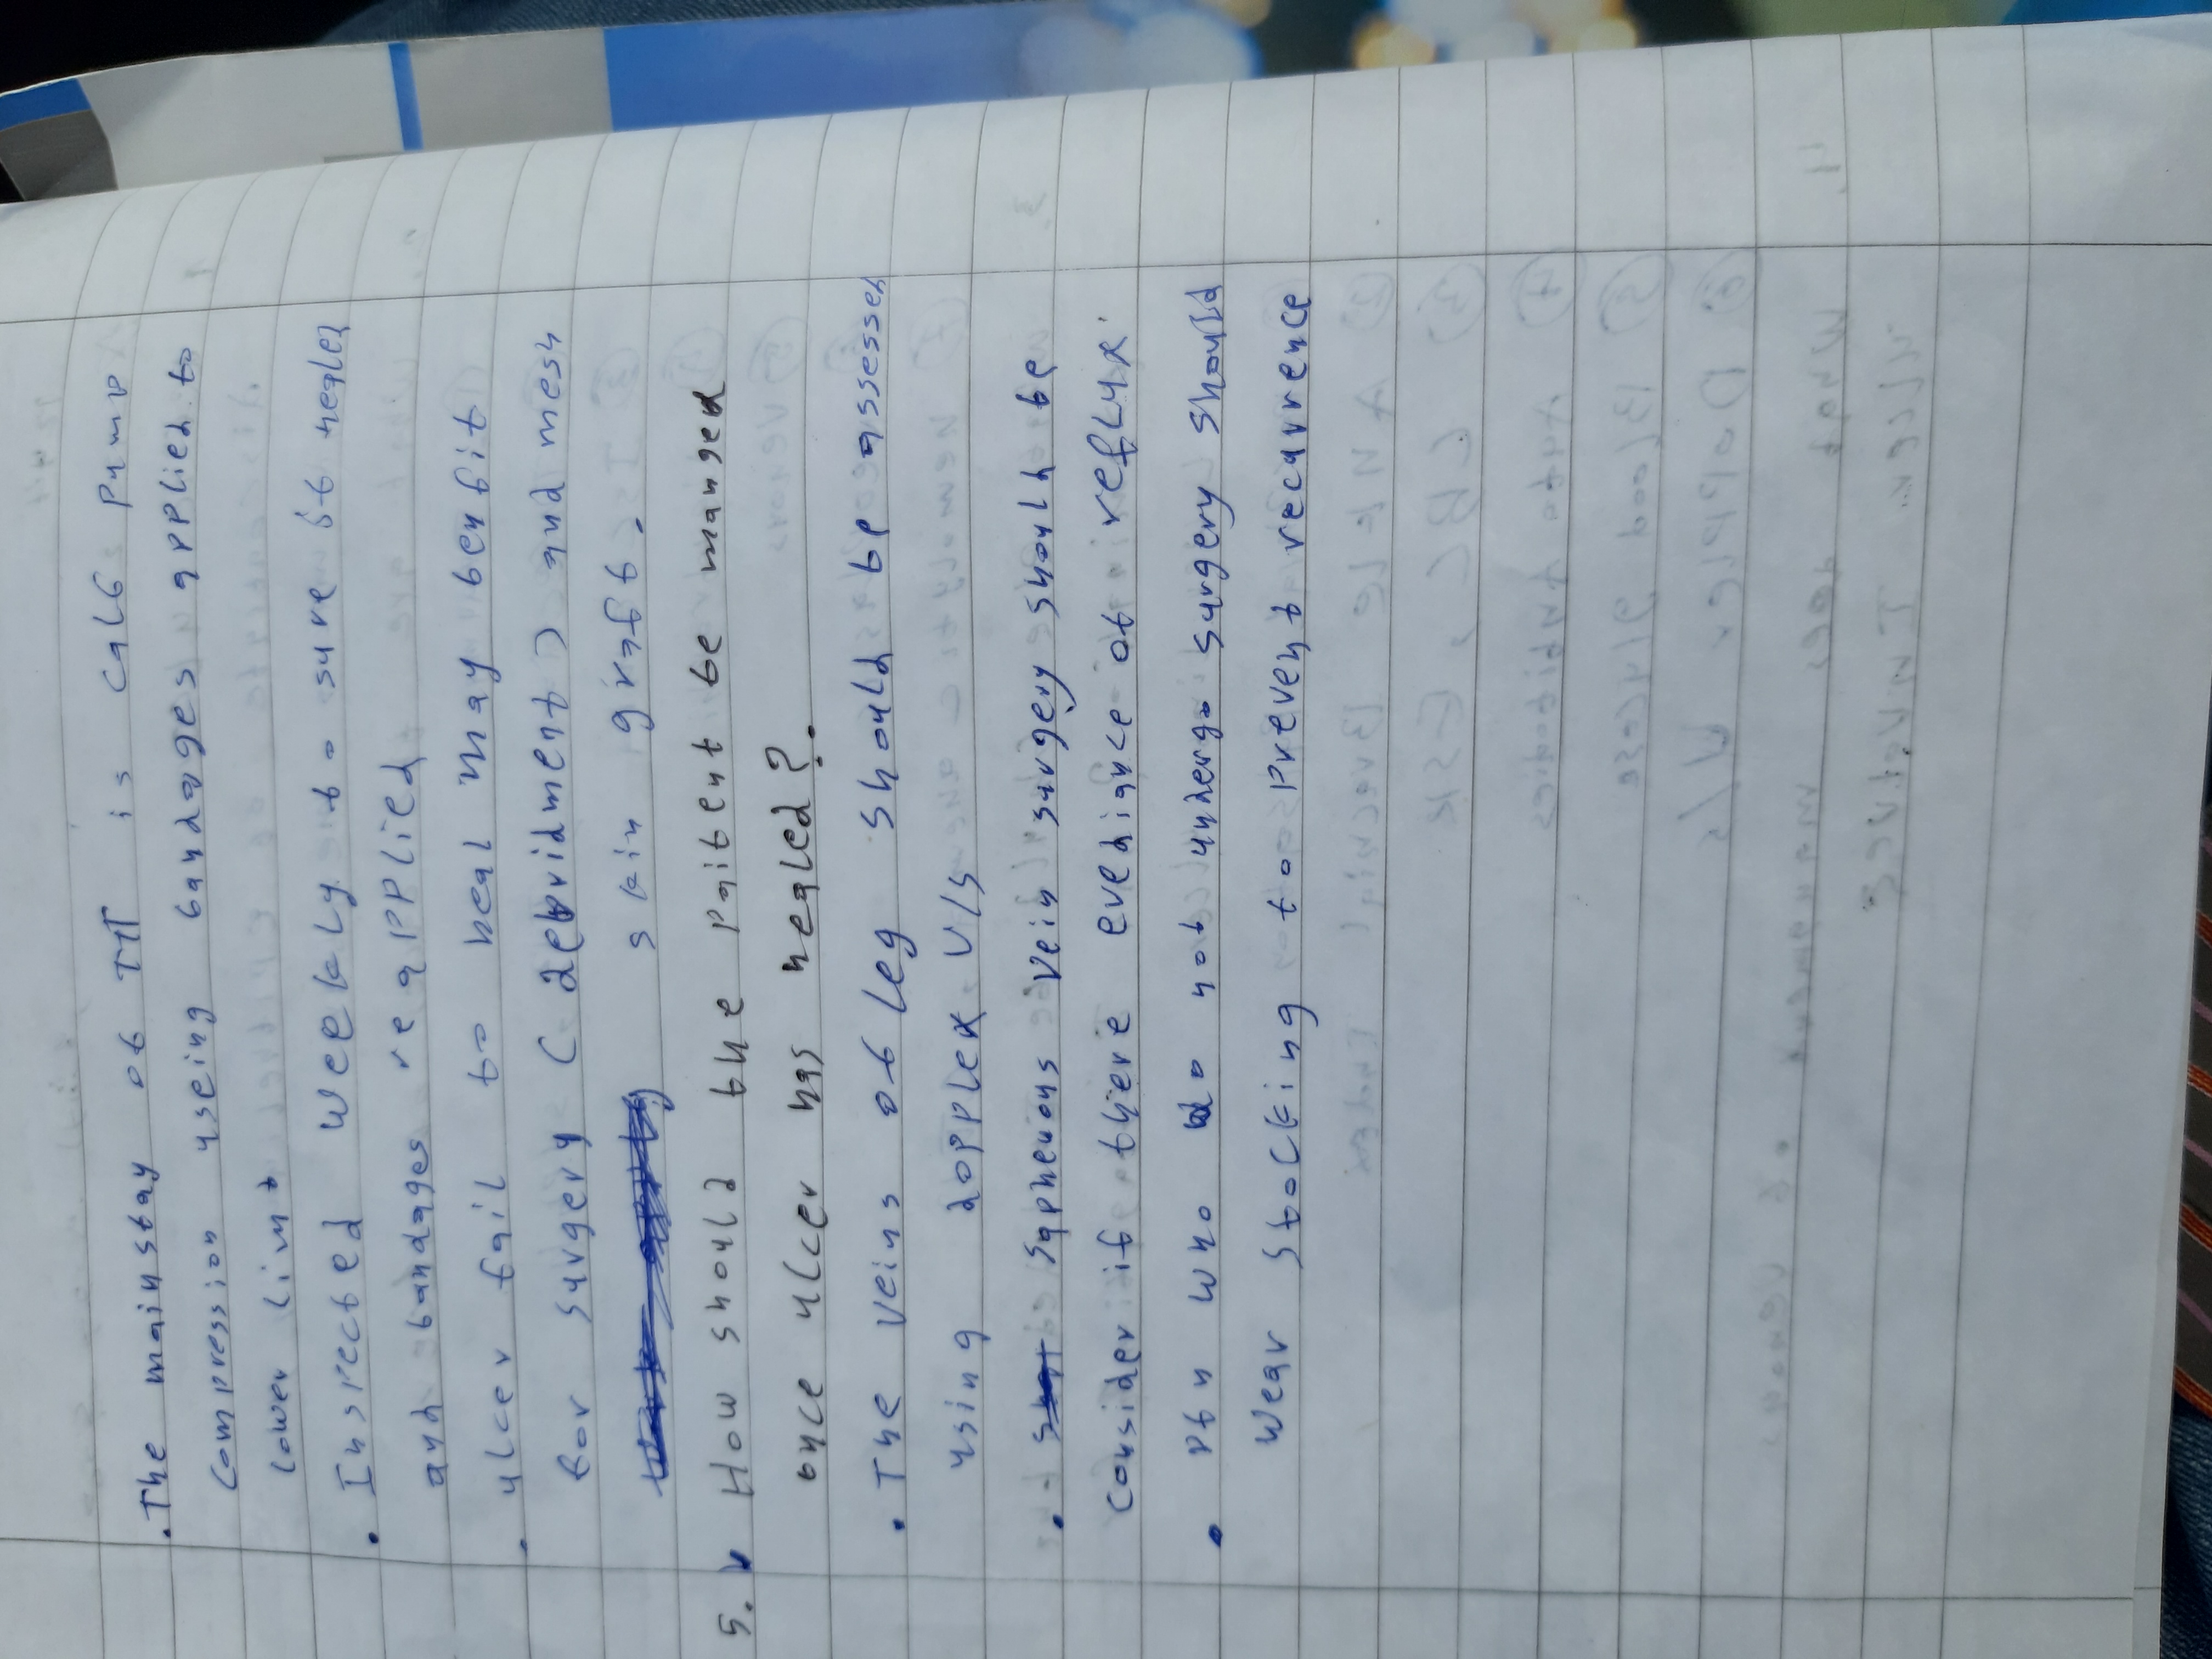 . The mainstay of TTT is calf pump
compression useing bandages applied to
lower limb
. Inspected weekly to sure if healed
and bandages reapplied
. ulcer fail to heal may benfit
for survgery ( debvidment ) and mesh
skin graft.
5. How should the paitent be manged
once ulcer has healed?.
. The veins of leg should be assessed
using doppler U/S
. Saphenous vein surgery should be
consider if there evediance of reflux.
. Ptn who do not undergo surgery should
wear stocking to prevent recurrence